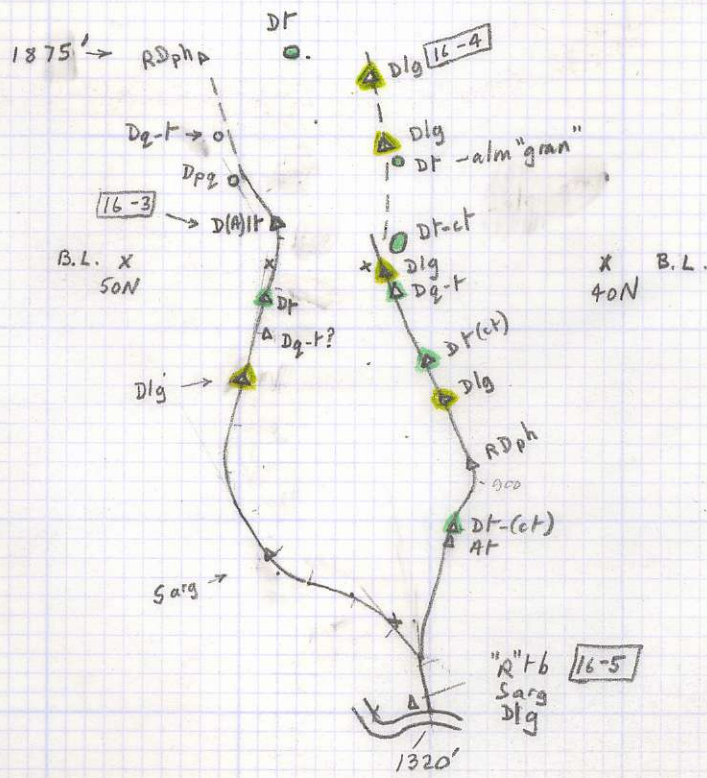 Dt
1875' → RDph
Dlg 16-4
Dq-t →
Dlg
Dt -alm "gran"
Dpq
16-3 → D(A)lt
Dt-ct
B.L. x
50N
x
x Dlg
Dq-t
x B.L.
40N
Dt
Dq-t?
Dt(ct)
Dlg →
Dlg
RDph
900
Dt-(ct)
At
Sarg →
x
"R"tb 16-5
Sarg
Dlg
1320'